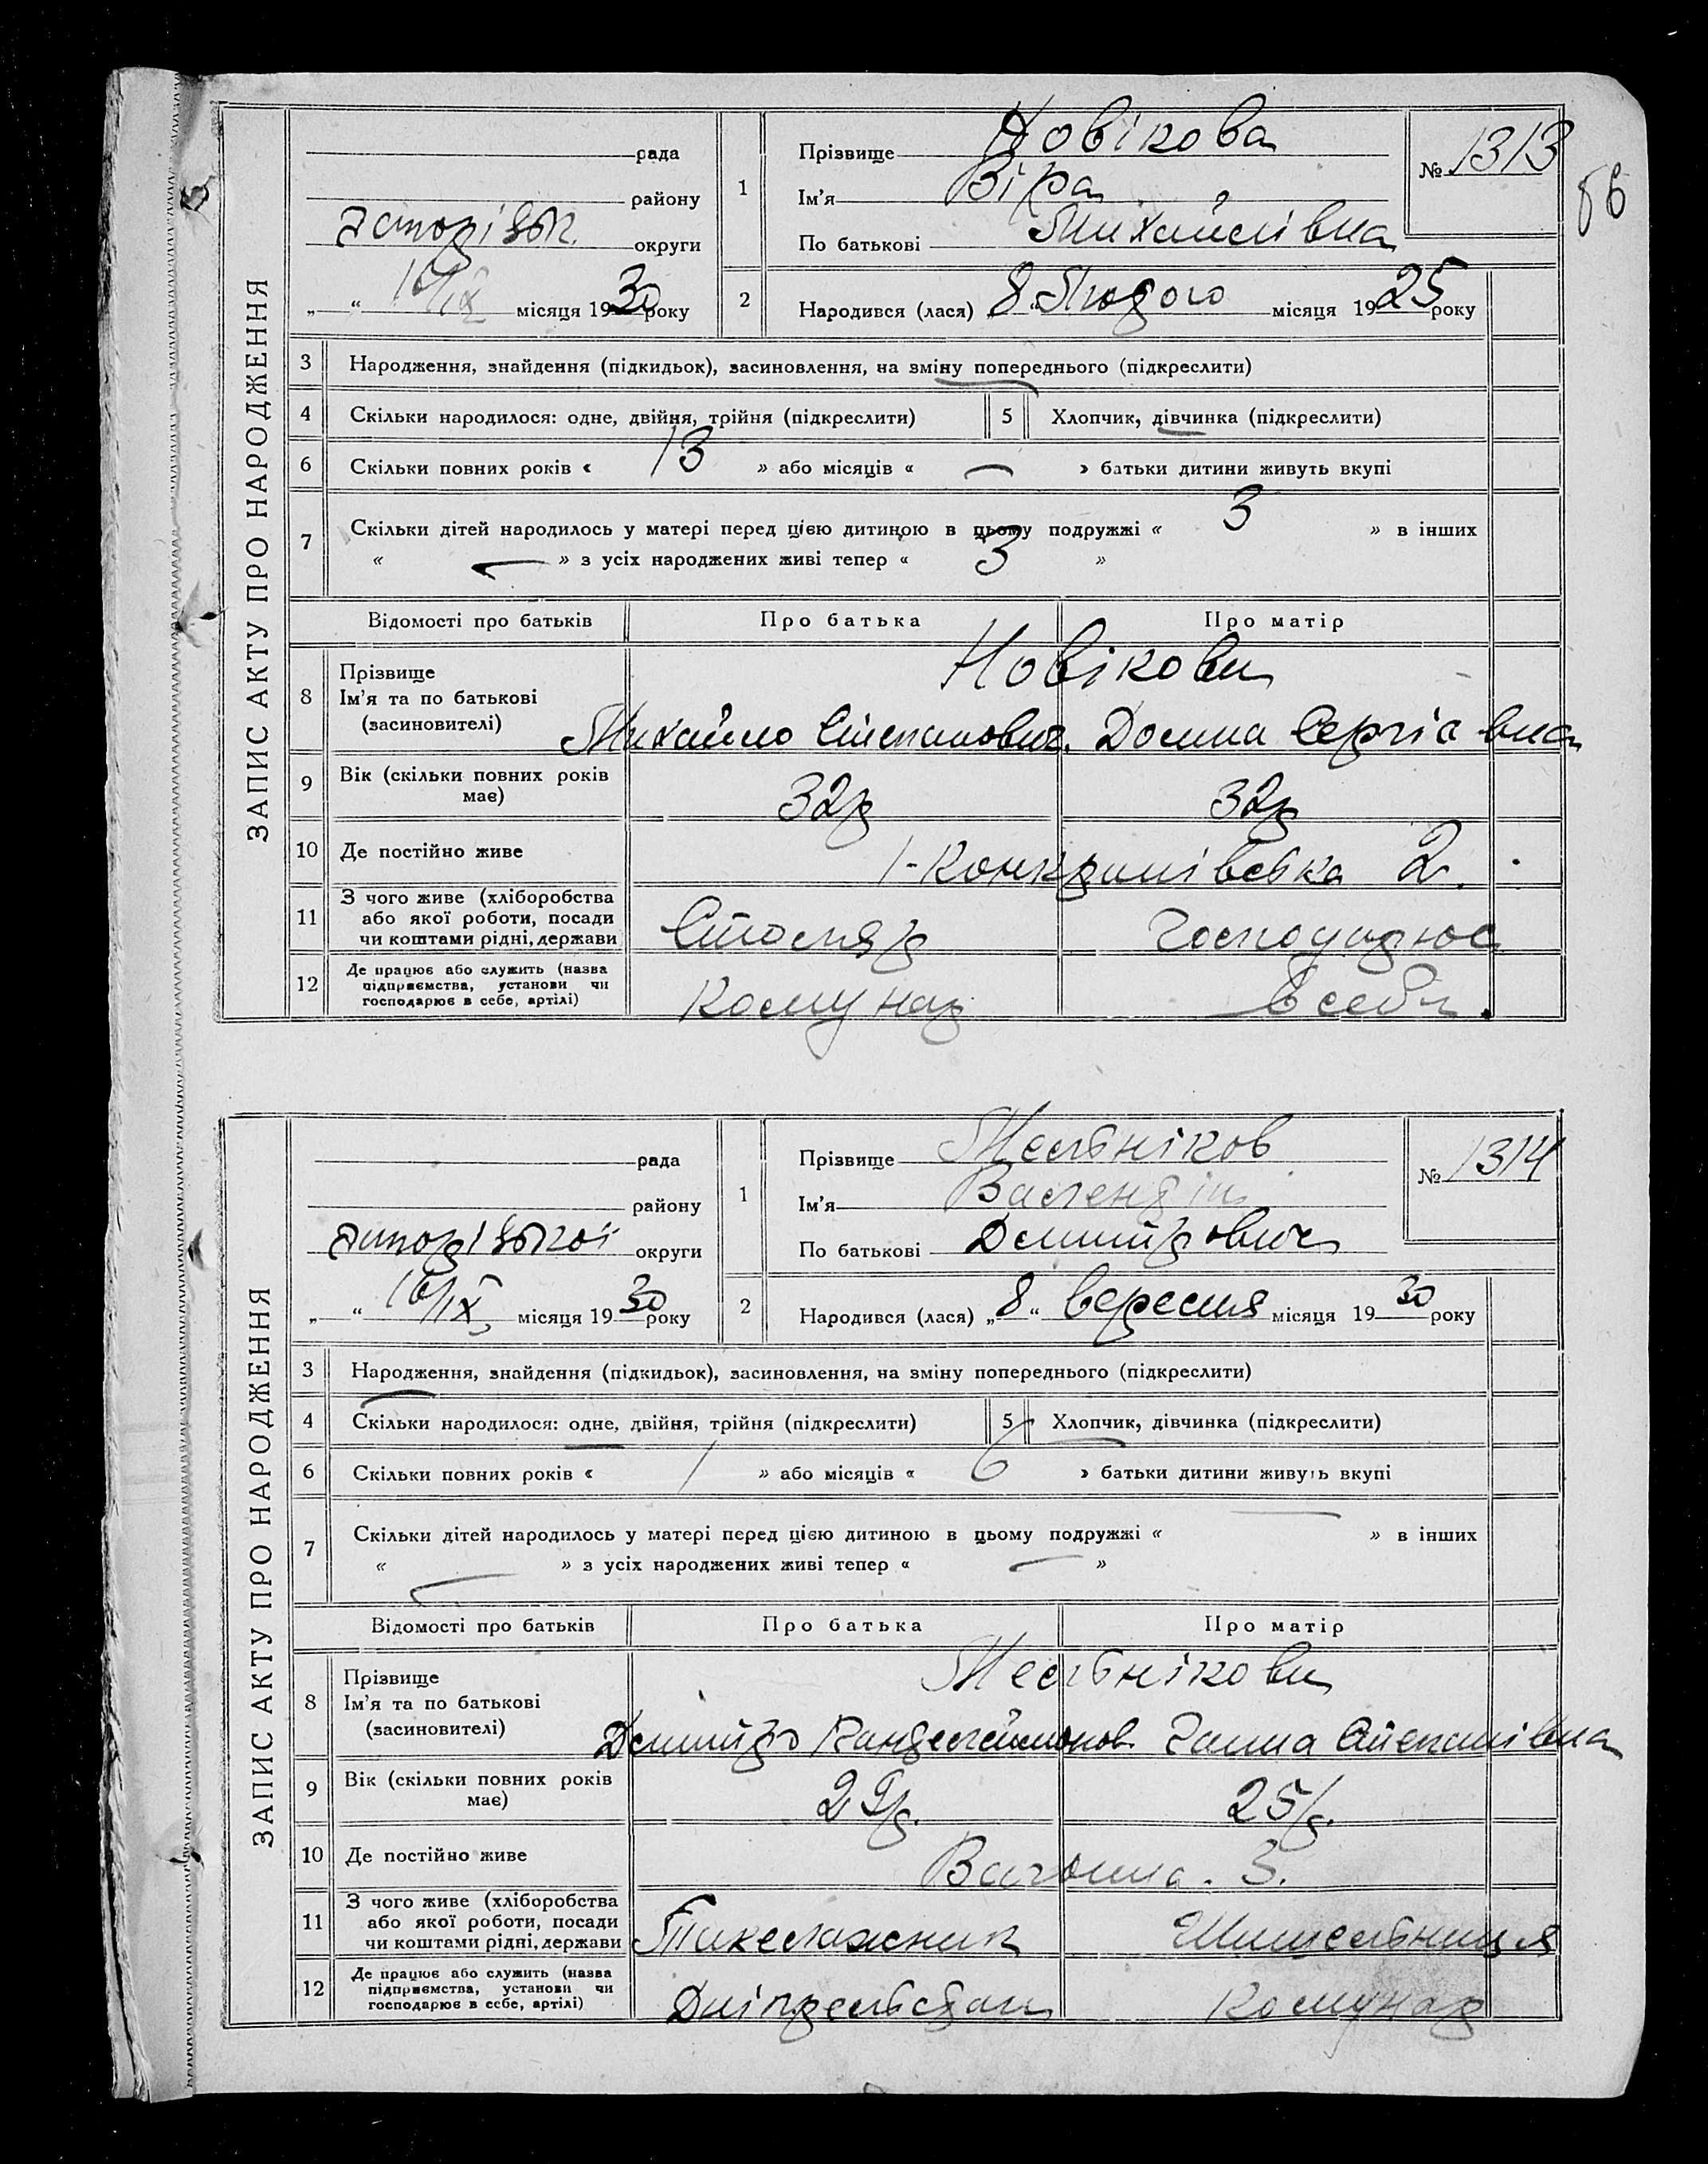 ЗАПИС АКТУ ПРО НАРОДЖЕННЯ
рада
району
округи
„ “ 16/IX місяця 1930 року
1
Прізвище Новікова
Ім'я Віра
По батькові Михайлівна
№ 1313
2
Народився (лася) „8“ Лютого місяця 1925 року
3 Народження, знайдення (підкидьок), засиновлення, на зміну попереднього (підкреслити)
4 Скільки народилося: одне, двійня, трійня (підкреслити)
5 Хлопчик, дівчинка (підкреслити)
6 Скільки повних років « 13 » або місяців « — » батьки дитини живуть вкупі
7 Скільки дітей народилось у матері перед цією дитиною в цьому подружжі « 3 » в інших
« — » з усіх народжених живі тепер « 3 »
Відомості про батьків Про батька Про матір
8 Прізвище
Ім'я та по батькові
(засиновителі)
Новікови
Михайло Степанович. Домна Сергіевна
9 Вік (скільки повних років
має)
32р 32р
10 Де постійно живе
2.
11 З чого живе (хліборобства
або якої роботи, посади
чи коштами рідні, держави
Столяр
12 Де працює або служить (назва
підприємства, установи чи
господарює в себе, артілі)
Комунар в себе
ЗАПИС АКТУ ПРО НАРОДЖЕННЯ
рада
району
округи
„ “ 16/IX місяця 1930 року
1
Прізвище Мельніков
Ім'я Валентін
По батькові Дмитрович
№ 1314
2
Народився (лася) „8“ вересня місяця 1930 року
3 Народження, знайдення (підкидьок), засиновлення, на зміну попереднього (підкреслити)
4 Скільки народилося: одне, двійня, трійня (підкреслити)
5 Хлопчик, дівчинка (підкреслити)
6 Скільки повних років « 1 » або місяців « 6 » батьки дитини живуть вкупі
7 Скільки дітей народилось у матері перед цією дитиною в цьому подружжі « — » в інших
« — » з усіх народжених живі тепер « — »
Відомості про батьків Про батька Про матір
8 Прізвище
Ім'я та по батькові
(засиновителі)
Мельнікови
Дмитро Ганна Степанівна
9 Вік (скільки повних років
має)
29р. 25р.
10 Де постійно живе
3.
11 З чого живе (хліборобства
або якої роботи, посади
чи коштами рідні, держави
Такелажник Шишельниця
12 Де працює або служить (назва
підприємства, установи чи
господарює в себе, артілі)
Дніпрельстан Комунар